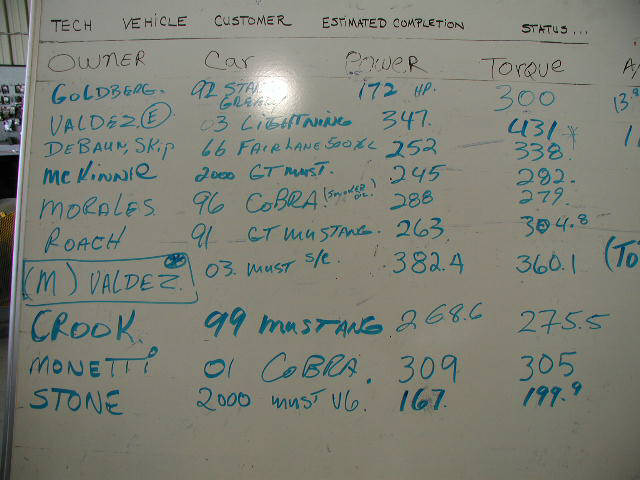 TECH VEHICLE CUSTOMER ESTIMATED COMPLETION STATUS...
OWNER Car POWER TORQUE A
GOLDBERG. 92 172 HP. 300 13.9
VALDEZ. (E) 03 LIGHTNING 347. 431 *
DEBAUN, SKIP 66 FAIRLANE 500XL 252 338.
McKINNIE 2000 GT MUST. 245 282.
MORALES 96 COBRA. 288 279.
ROACH 91 GT MUSTANG. 263 304.8
(M) VALDEZ. 03. MUST S/C 382.4 360.1 (TO
CROOK. 99 MUSTANG 268.6 275.5
MONETTI 01 COBRA. 309 305
STONE 2000 MUST V6. 167. 199.9